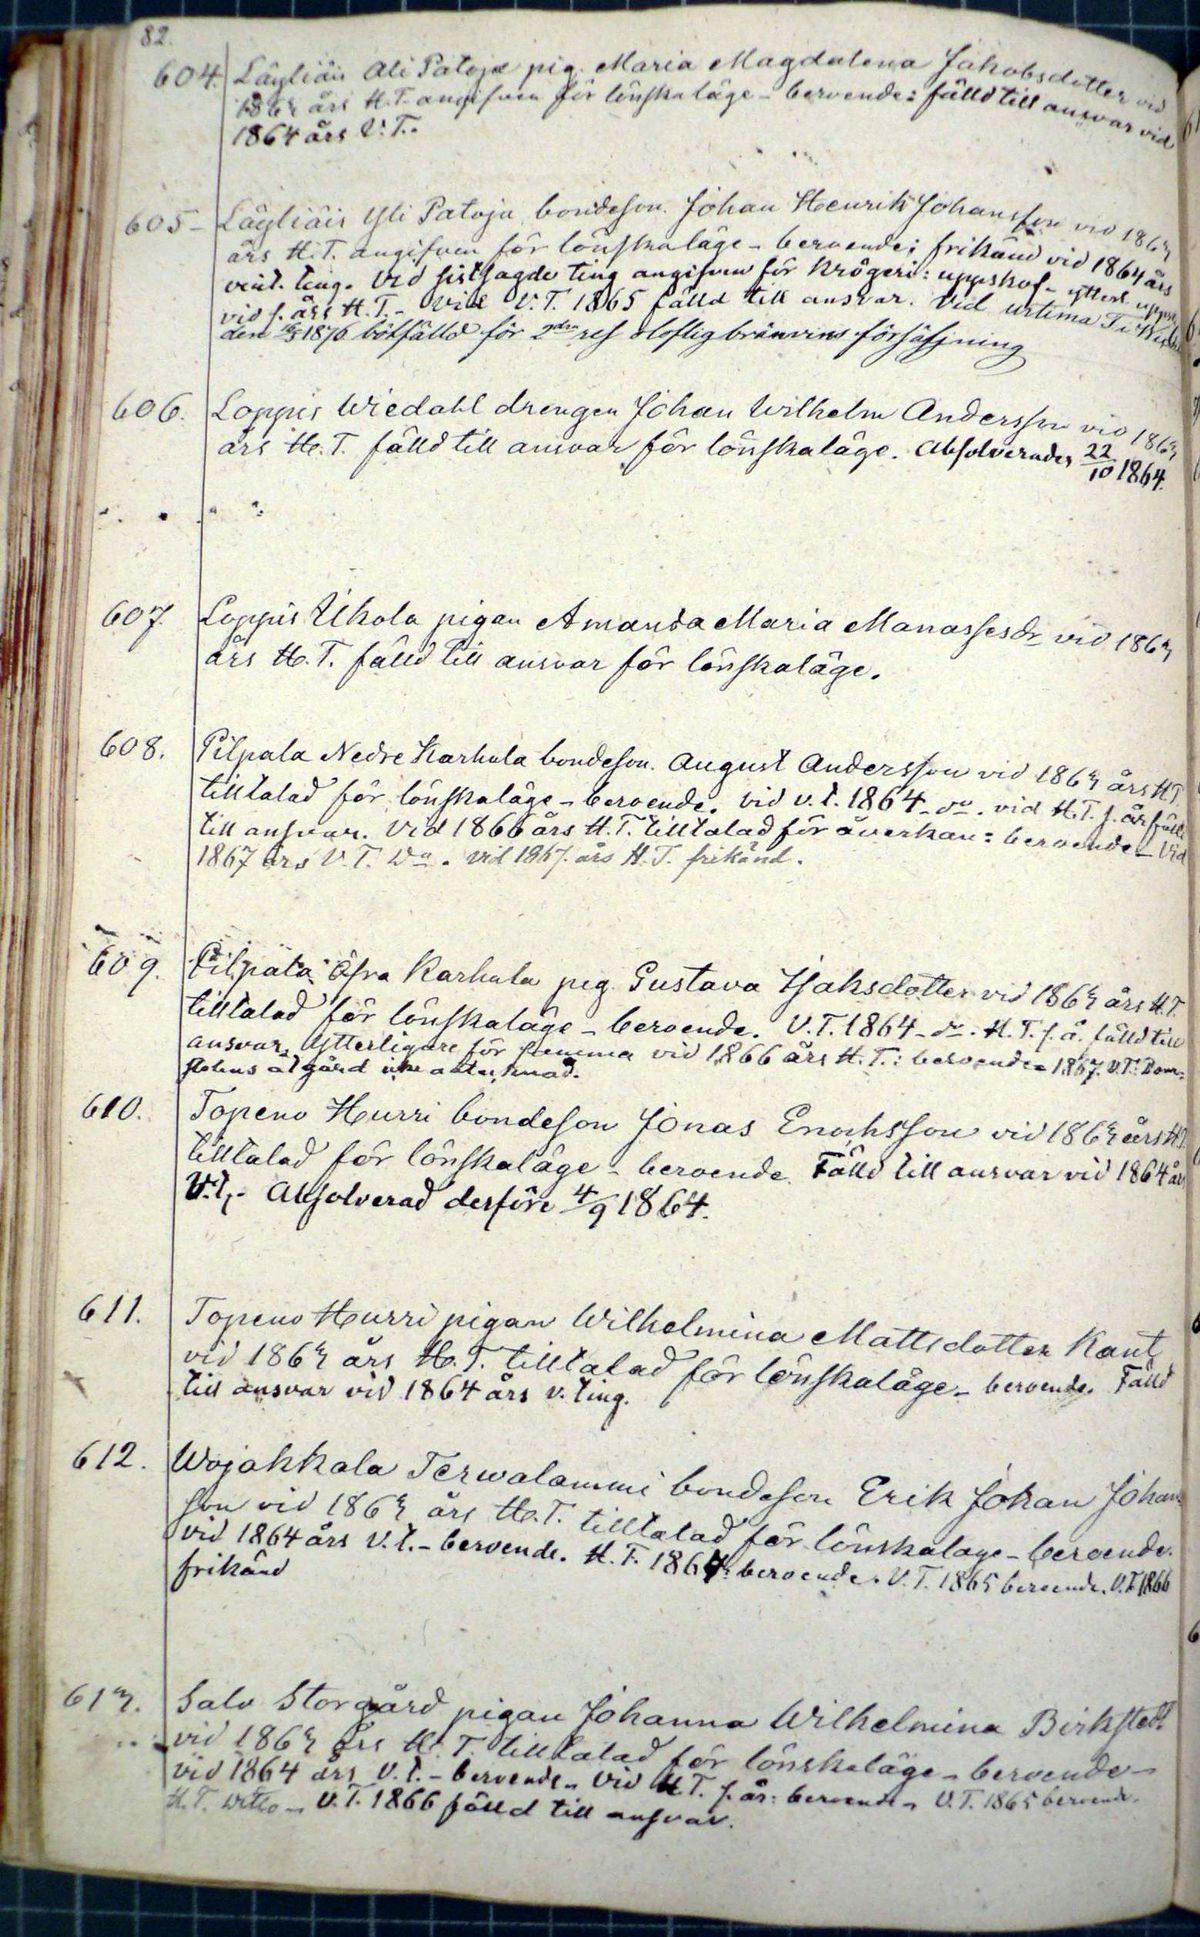 82.
604. Läyliäis Ali Patoja pig. Maria Magdalena Jakobsdotter vid
1863 års H.T. angifven för lönskaläge - beroende: fälld till ansvar vid
1864 års V.T.
605 - Läyliäis Yli Patoja bondeson. Johan Henrik Johansson vid 1863
års H.T. angifven för lönskaläge - beroende; frikänd vid 1864 års
vint. ting. Vid sistsagde ting angifven för krögeri: uppskof - ytterl. uppsk.
vid s. års H.T. - Vid V.T. 1865 fälld till ansvar. Vid urtima Ti
den 1870 bötfälld för 2dra res oloflig bränvins försäljning
606. Loppis Wiedahl drengen Johan Wilhelm Andersson vid 1863
års H.T. fälld till ansvar för lönskaläge. Absolverades 22/10 1864.
607. Loppis Ukola pigan Amanda Maria Manassesdr vid 1863
års H.T. fälld till ansvar för lönskaläge.
608. Pilpala Nedre Karhula bondeson. August Andersson vid 1863 års H.T.
tilltalad för lönskaläge - beroende. vid v.t. 1864 - do. vid H.T. s. år fälld
till ansvar. Vid 1866 års H.T. tilltalad för åverkan: beroende - Vid
1867 års V.T. Do. vid 1867 års H.T. frikänd.
609. Pilpala Öfra Karhula pig. Gustava Isaksdotter vid 1863 års H.T.
tilltalad för lönskaläge - beroende. V.T. 1864 - do. H.T. s.å. fälld till
ansvar. Ytterligare för samma vid 1866 års H.T.: beroende - 1867. V.T. Dom-
stolens åtgärd icke antecknad.
610. Topeno Hurri bondeson Jonas Enochsson vid 1863 års H.T.
tilltalad för lönskaläge - beroende. Fälld till ansvar vid 1864 års
V.t. - Absolverad derföre 4/9 1864.
611. Topeno Hurri pigan Wilhelmina Mattsdotter Kant
vid 1863 års H.T. tilltalad för lönskaläge - beroende. Fälld
till ansvar vid 1864 års v. ting.
612. Wojakkala Terwalammi bondeson Erik Johan Johans-
son vid 1863 års H.T. tilltalad för lönskaläge - beroende.
vid 1864 års V.t. - beroende. H.T. 1864: beroende. V.T. 1865 beroende. V.T. 1866
frikänd
613. Salo Storgård pigan Johanna Wilhelmina Birkstedt
vid 1863 års H.T. tilltalad för lönskaläge - beroende -
vid 1864 års V.t. - beroende - Vid H.T. s. år: beroende - V.T. 1865 beroende.
H.T. ditto - V.T. 1866 fälld till ansvar.